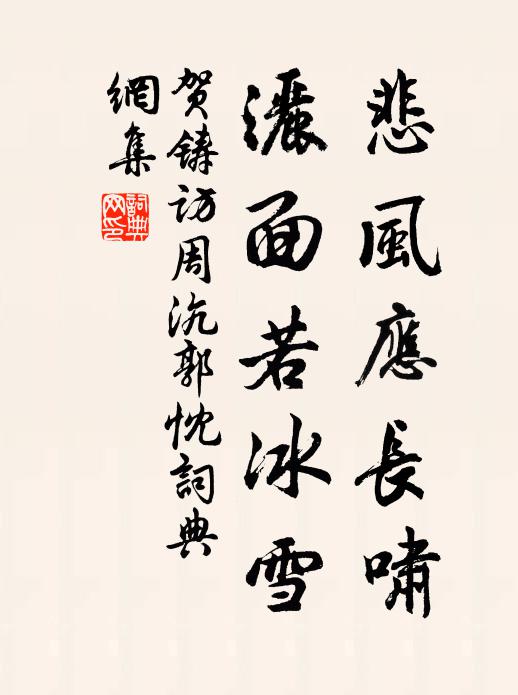 悲風應長嘯
灑面若冰雪
贺鑄访周沆郭忱詞典
網集
詞典網印